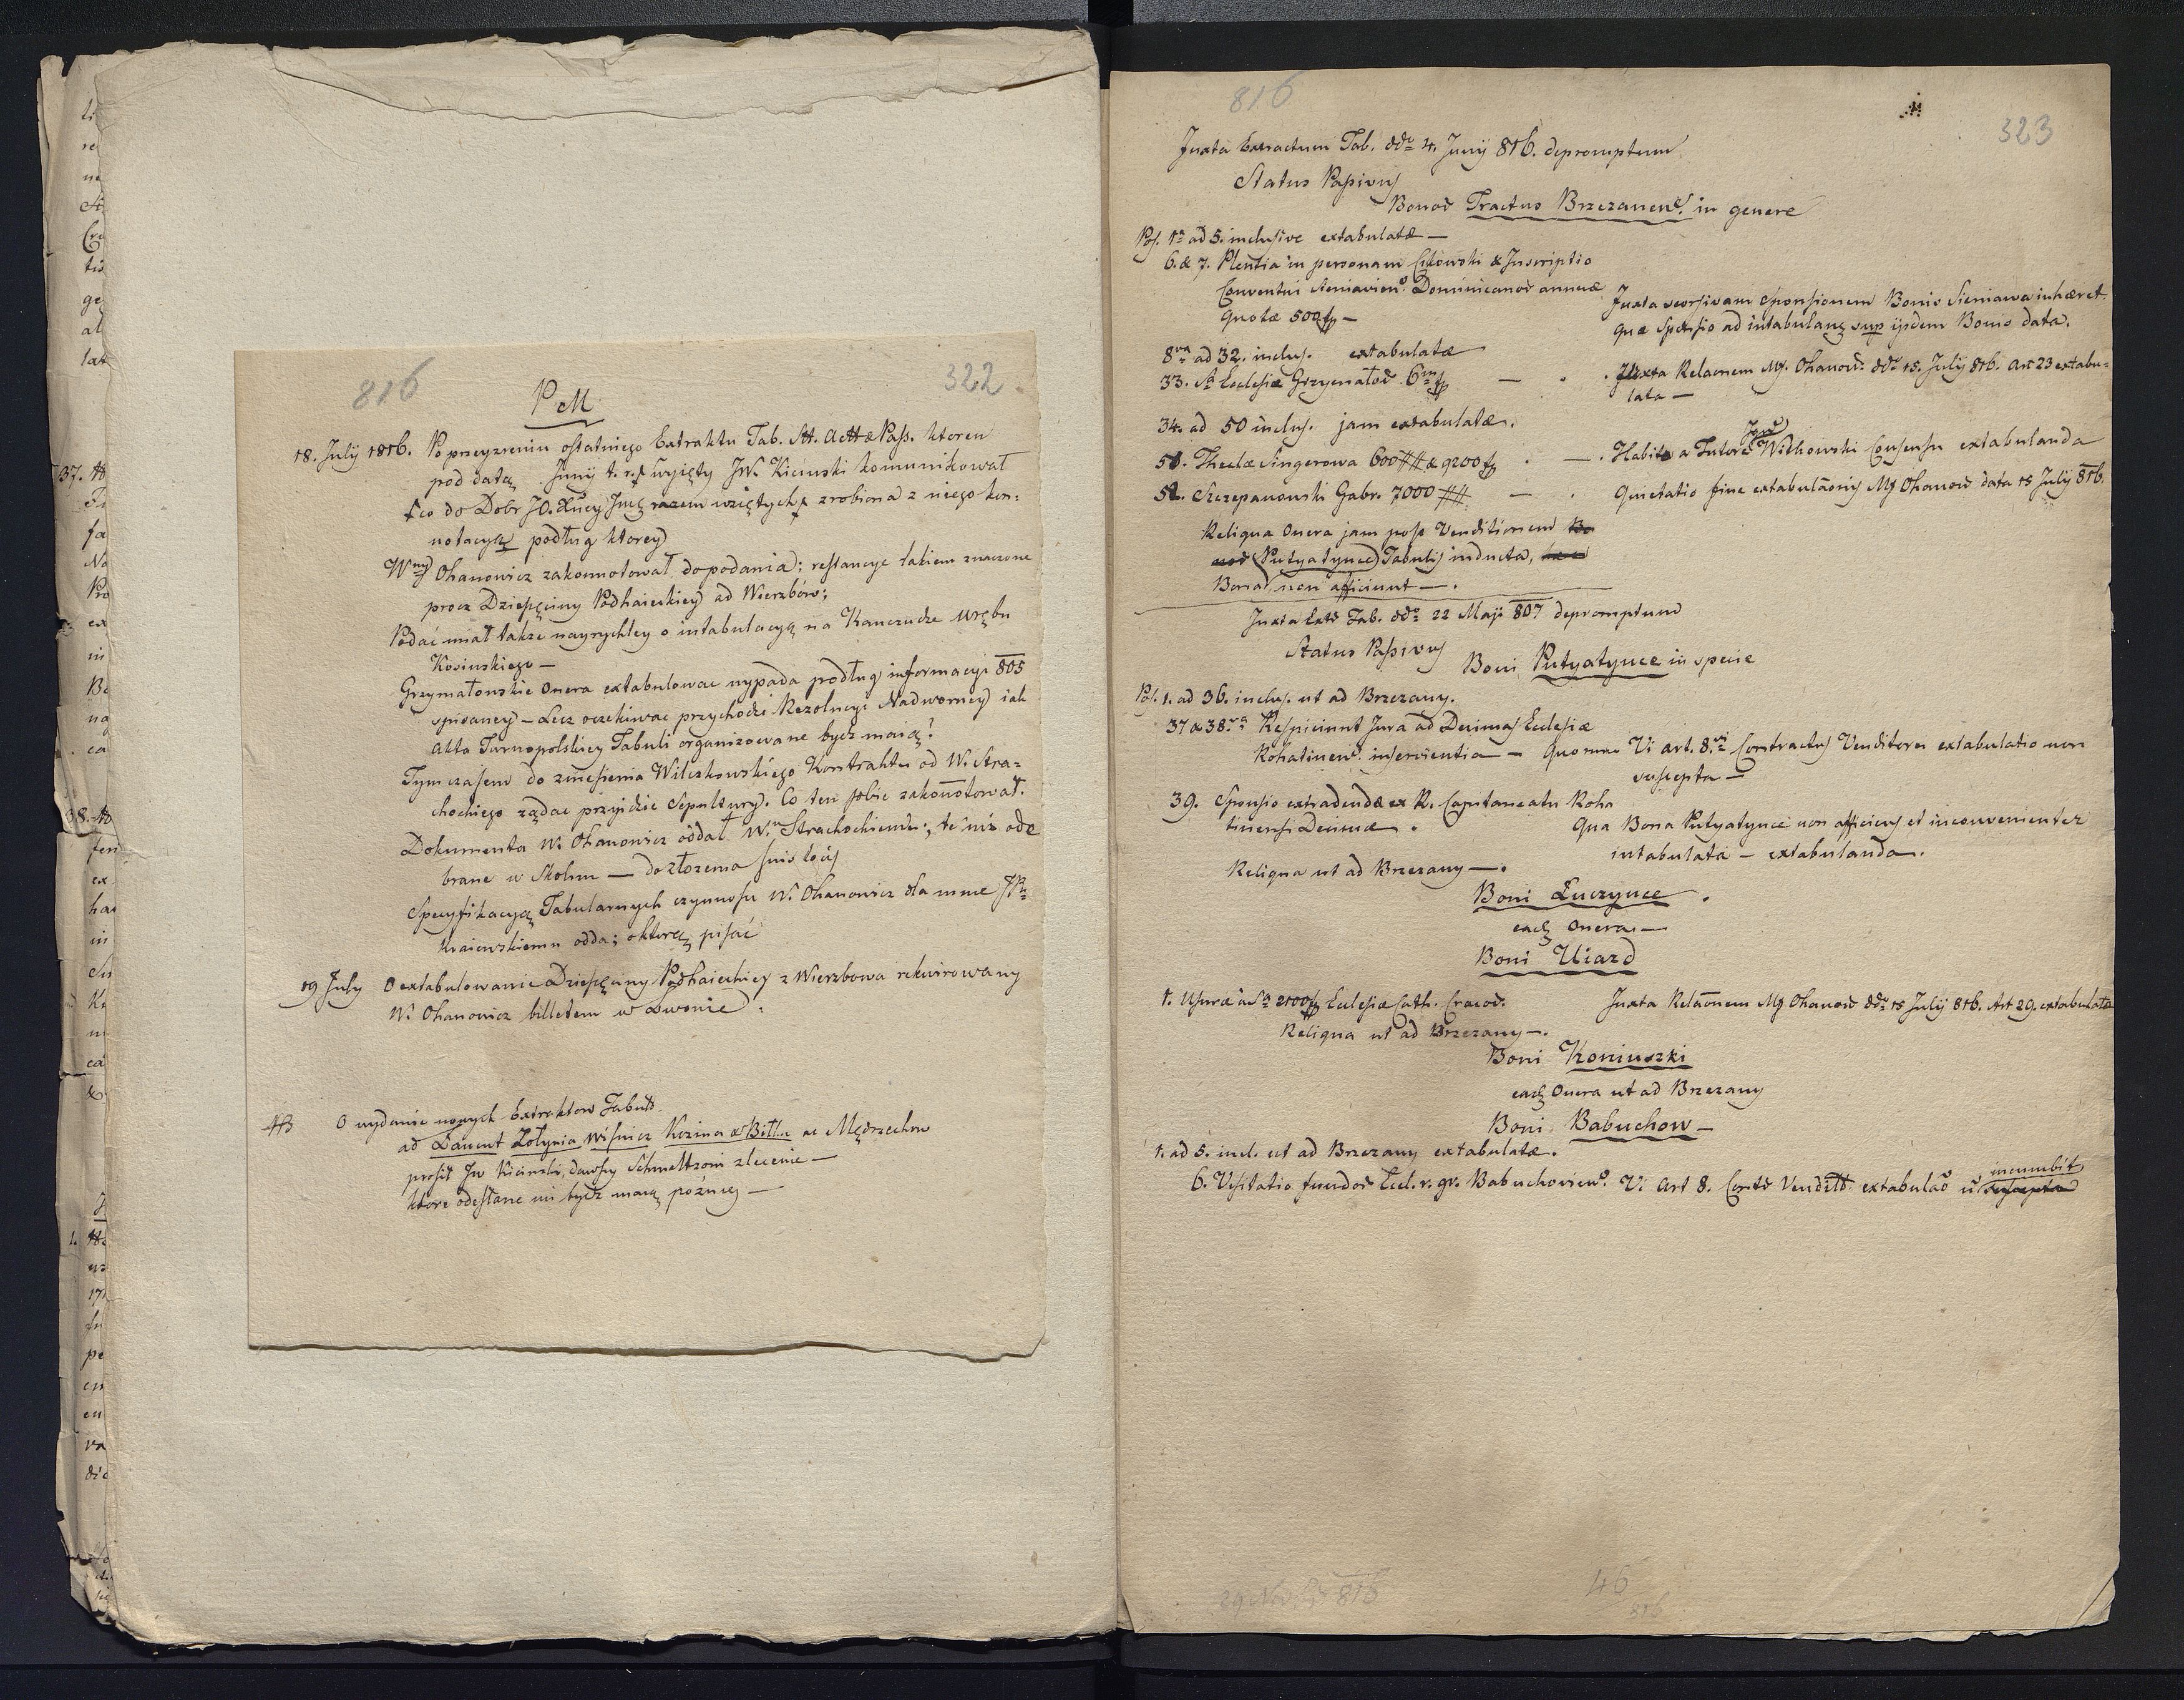 816
322
PM
18. July 1816. Po przeyzreniu ostatniego Extraktu Tab. Stt. Act. & Pass. ktoren
pod datą . Juny t. r. wyięty JW. Kicinski komunikował
co do Dobr JO. Xney Jmci razem wziętych zrobiona z niego kon:
notacya podług ktorey
Wny Ohanowicz zakonnotował do podania; restancye takiem znaczone
procz Dziesięciny Podhaieckiey ad Wierzbów;
Podać miał także nayrychley o intabulacyą na Kanczudze wrębu
Kosinskiego —
Grzymałowskie Onera extabulowac wypada podług informacyi 805
spisaney — Lecz oczekiwac przychodzi Rezolucyi Nadworney iak
akta Tarnopolskiey Tabuli organizowane bydz maią?
Tymczasem do zniesienia Wilczkowskiego Kontraktu od W. Stra=
chockiego ządac przyidzie Sepultury. Co ten sobie zakonnotował.
Dokumenta W. Ohanowicz oddał Wu Strachockiemu; te nie ode
brane w Skolim — do złozenia suis locis
Specyfikacyą Tabularnych czynnosci W. Ohanowicz dla mnie JP.
Kraiewskiemu odda; o ktorą pisać
19 July O extabulowanie Dziesięciny Podhaieckiey z Wierzbowa rekwirowany
W. Ohanowicz billetem w Lwowie.
NB O wydanie nowych Extraktow Tabul.
ad Łancut Zołynia Wisnicz Kozina & Bitla ac Mędrzechow
prosił JW Kicinski, dawszy Schmeltzowi zlecenie —
ktore odesłane mi bydz maią pózniey —
816
323
Juxta Extractum Tab. ddo 4. Juny 816. depromptum
Status Passivus
Bonor Tractus Brzezanens. in genere
Pos. 1a ad 5. inclusive extabulatæ —
6. & 7. Plentia in personam Cikowski & Inscriptio
Conventui Sieniaviens. Dominicanor annuæ
quotæ 500 fp —
Juxta seorsivam Sponsionem Bonis Sieniawa inhæret.
quæ Sponsio ad intabulan sup ijsdem Bonis data.
8va ad 32. inclus. extabulatæ
33. Sa Ecclesiæ Grzymałod. 6m fp — . . Juxta Relaonem Mf. Ohanow. ddo 15. July 816. Art 23 extabu=
lata —
34. ad 50 inclus. jam extabulatæ.
51. Theclæ Singerowa 600 ## & 9200 fp . — . Habito a Tutore Jgn. Witkowski Consensu extabulanda
52. Szczepanowski Gabr. 7000 ## — . Quietatio fine extabulaonis Mf Ohanow data 15 July 816.
Reliqua Onera jam post Venditionem Bo
nor (Putyatynce) Tabulis inducta, hæc
Bona non afficiunt —.
Juxta Extr Tab. ddo 22 Maji 807 depromptum
Status Passivus
Boni Putyatynce in specie
Pos. 1. ad 36. inclus. ut ad Brzezany.
37 & 38va Respiciunt Jura ad Decimas Ecclesiæ
Rohatinens. inservientia — quorum Vi art. 8vi Contractus Venditores extabulatio non
suscepta —
39. Sponsio extradendæ ex R. Capitaneatu Roha
tinensi Decimæ .
Qua Bona Putyatynce non afficiens et inconvenienter
intabulata — extabulanda.
Reliqua ut ad Brzezany —.
Boni Łuczynce .
eadem Onera —
Boni Uiazd
1. Usuræ a S 2100 fp Ecclesiæ Cath. Cracov.
Juxta Relaonem Mf Ohanow ddo 15 July 816. Art 29. extabulatæ
Reliqua ut ad Brzezany —.
Boni Koniuszki
eadem Onera ut ad Brzezany
Boni Babuchow —
1. ad 5. incl. ut ad Brzezany extabulatæ.
6. Visitatio fundor Eccl. r. gr. Babuchoviens. Vi Art 8. Contr Vendit. extabulao n incumbit suscepta
29 Nov. 816
46
816